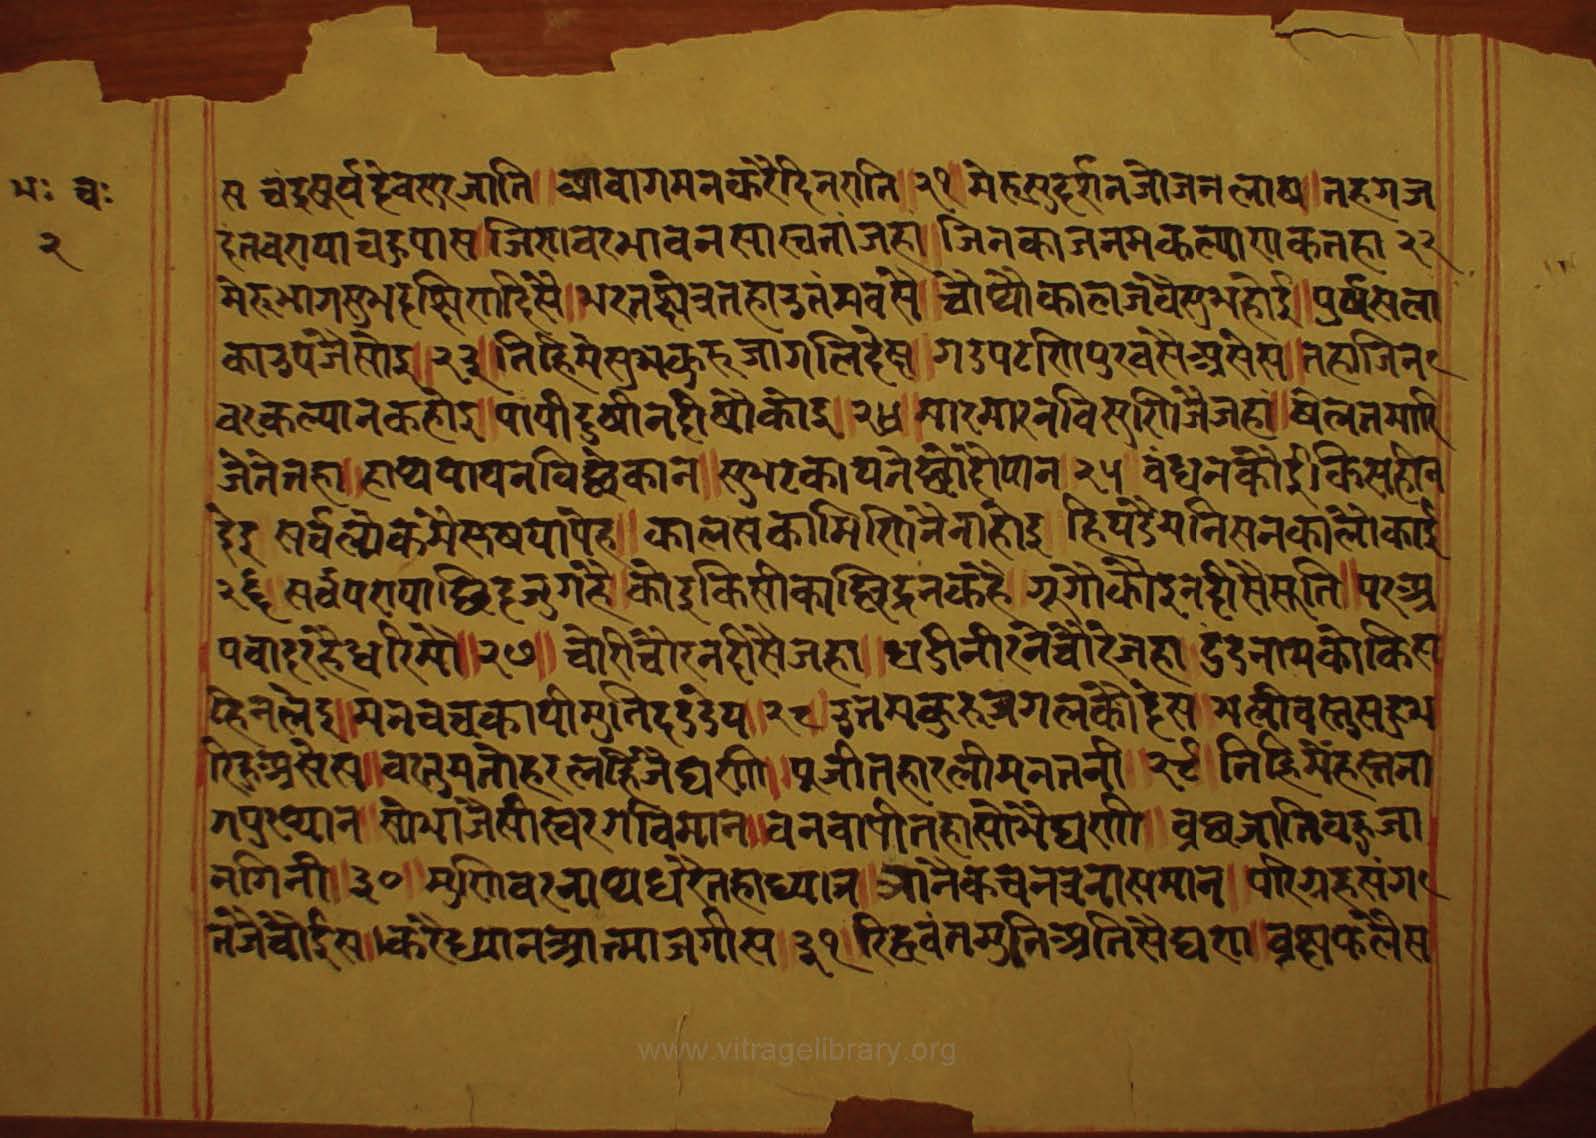 भः चः
२
स चंद्रसूर्यदेवसुरजाति ॥ आवागमनकरैदिनराति ॥ २१ ॥ मेरुसुदर्शनजोजनलाष ॥ तहगज
दंतवराषाचहुपास ॥ जिणवरभावनसास्वनांजहां ॥ जिनकाजनमकल्याणकतहा २२
मेरुभागसुभदक्षिणदिसै ॥ भरतक्षेत्रतहाउतंमवसै ॥ चौथौकालजवैसुभहोई ॥ पुर्षसला
काउपजैसोइ ॥ २३ ॥ तिहिमैसुभकुरुजांगलिदेस ॥ गढपटणिपुरवसैअसेस ॥ तहाजिन
वरकल्यानकहोइ ॥ पापीदुषीनदीषैकोइ ॥ २४ ॥ मारमारनविसुणिजैजहां ॥ षेलतमारि
जेनेतहा ॥ हाथपायनविछेकान ॥ सुभटकायनैछोहोपान २५ ॥ बंधनकोईकिसहीन
देइ सर्वलोकमैसुषयापेह ॥ कालसकामिणिनैनाहोइ हियडैमनिसनकालोकाई
२६ ॥ सर्वपराषाछिद्रजुगहै ॥ कोइकिसीकाछिद्रनकहै ॥ गूगोकोइनदीसैसति ॥ परअ
पवादरहैधरिमौ ॥ २७ ॥ चोरीचोरनदीसैजहा ॥ घडीनीरनैचोरैजहा दंडनायकोकिस
हिनलेइ ॥ मनवचकायीमुनिदढंडेय ॥ २८ उतमकुरुजांगलकोदेस ॥ भलीवस्तुसहुभ
रिहअसेस ॥ वस्तुमनोहरलहिजैघणी ॥ पुजीतहारलीमनतनी ॥ २९ ॥ तिहिमैहस्तना
गपुरथान ॥ सोभाजैसीस्वरगविमान ॥ वनवापीतहासोभैघणी ॥ व्रछजातिबहुजा
नगिनी ॥ ३० ॥ मुणिवरनाथधरैतहाध्यान ॥ जानैकंचनत्रनासमान ॥ परिग्रहसंग
तजैचौईस ॥ करैध्यानआत्माजगीस ॥ ३१ ॥ रिद्धवंतमुनिअतिसैघणा ॥ व्रछफलैस
www.vitragelibrary.org